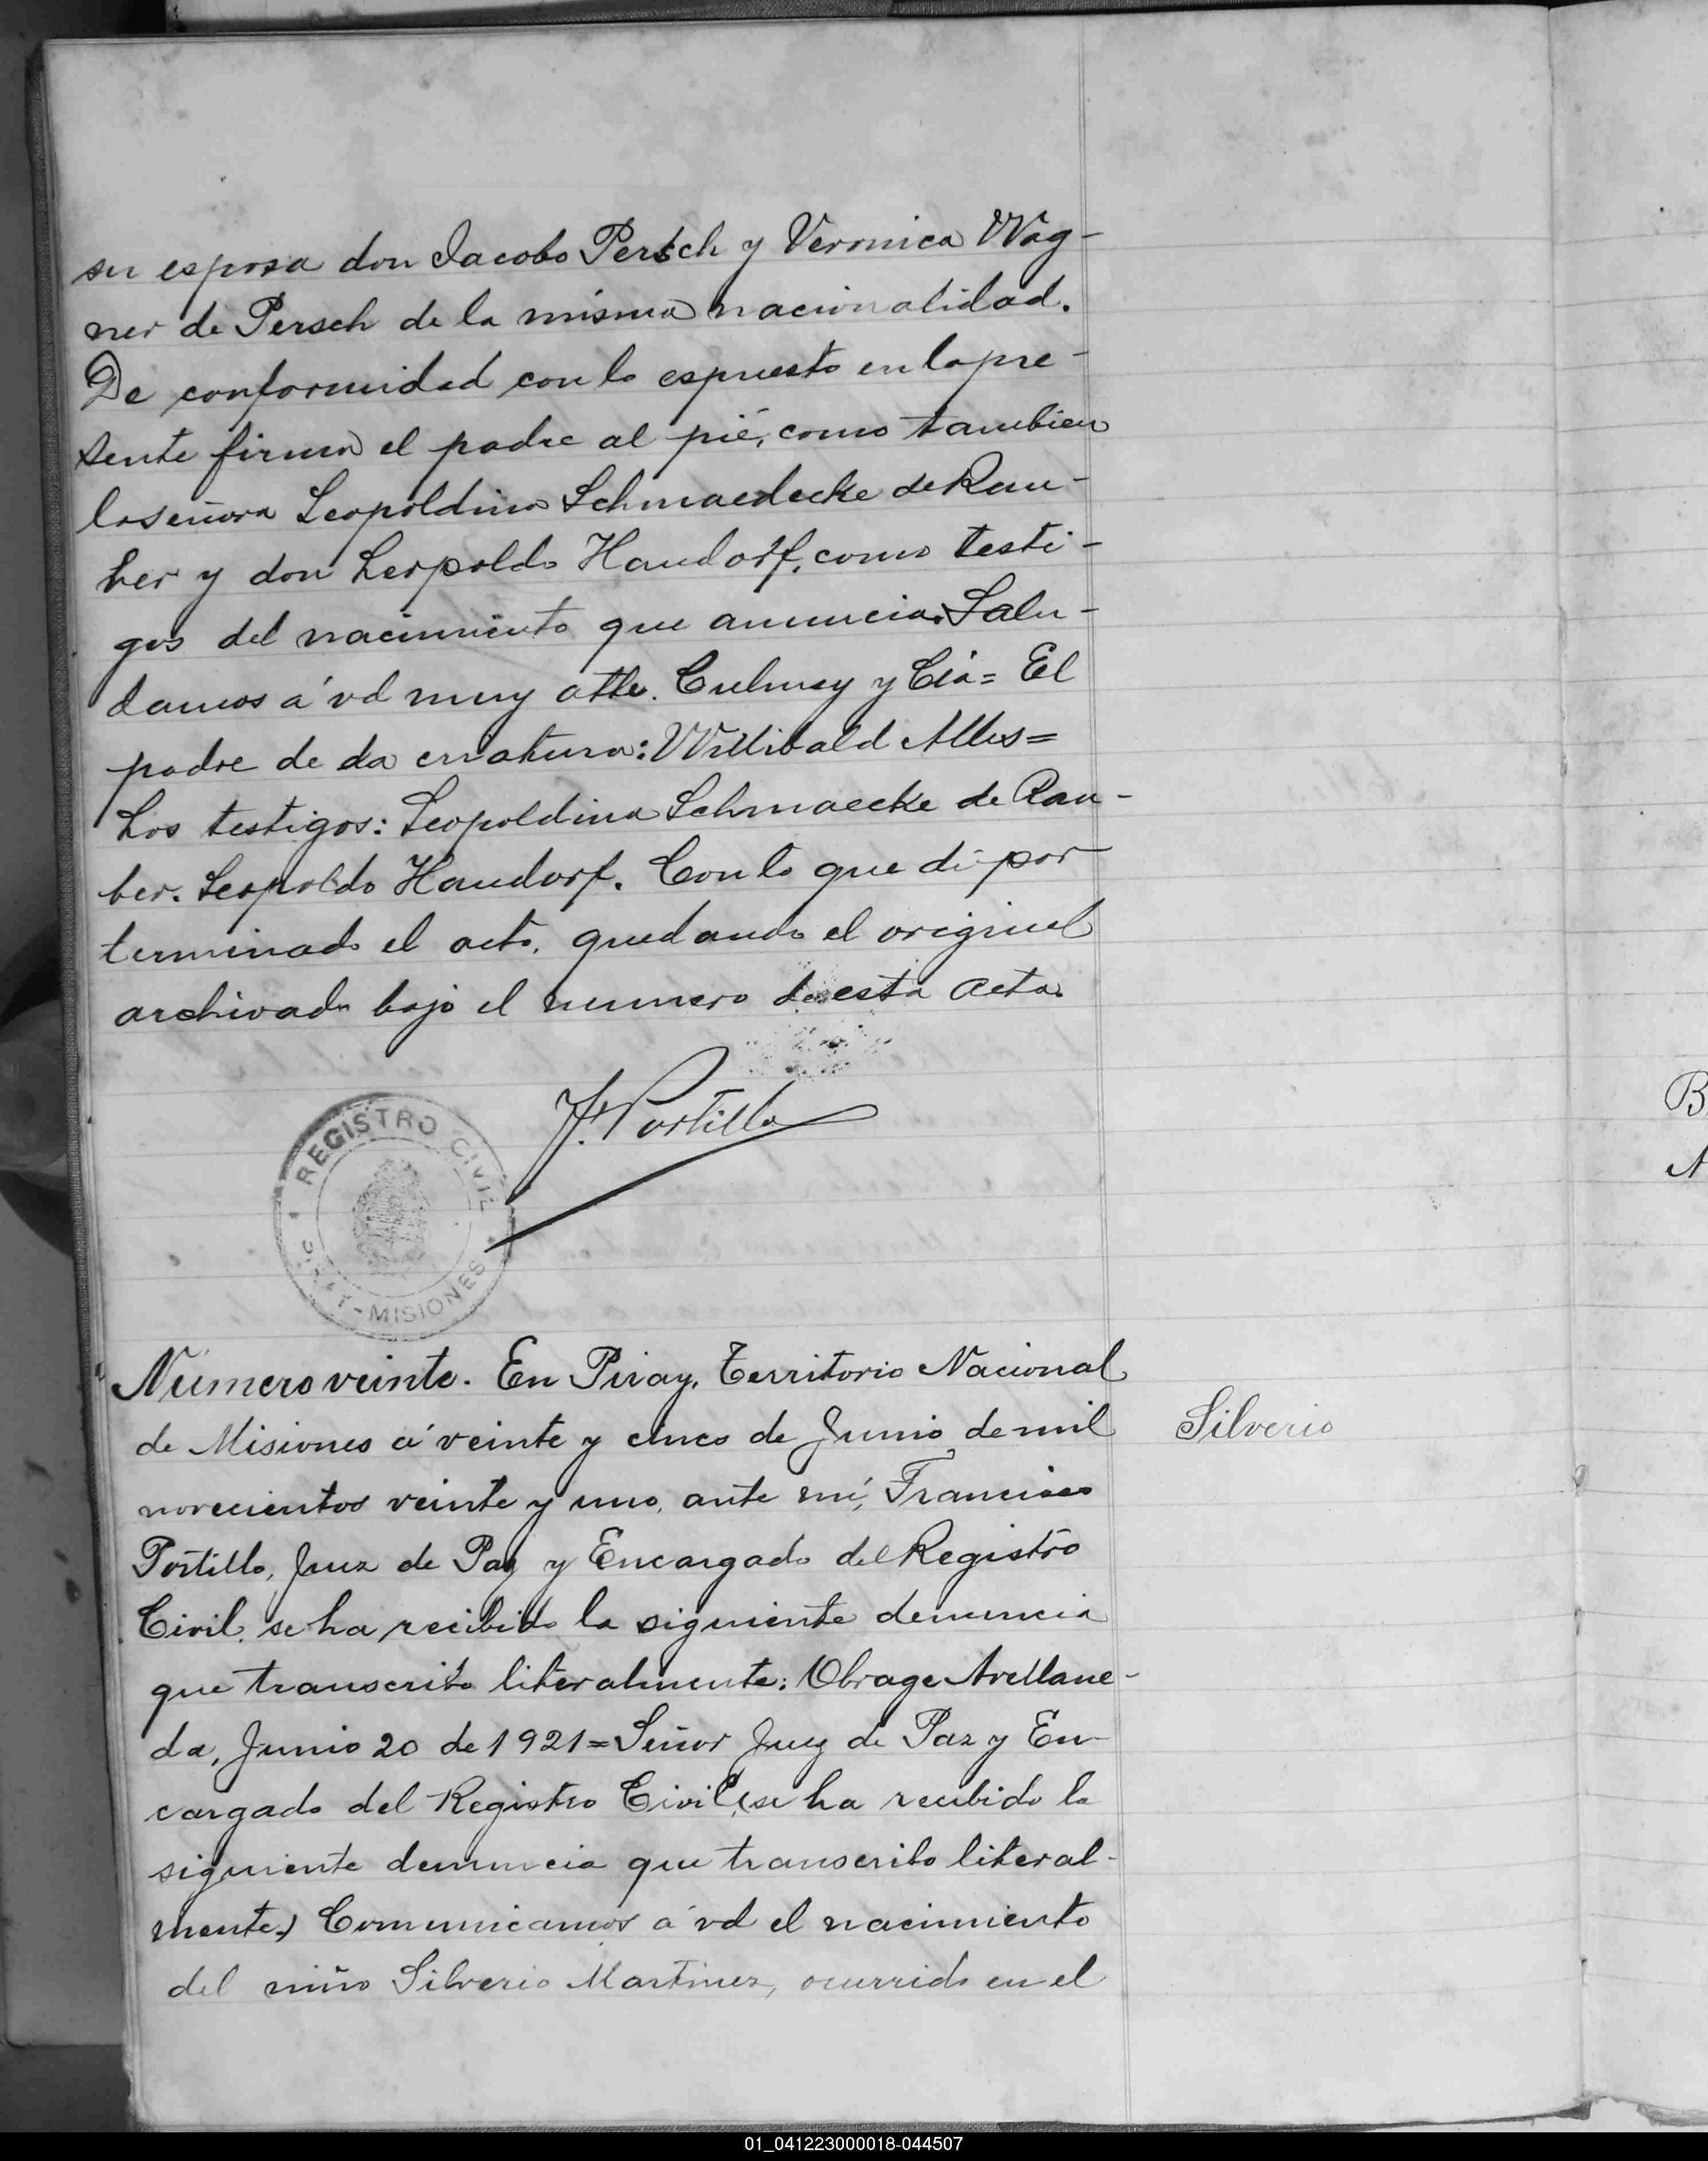 su esposa don Jacobo Persch y Veronica Wag-
ner de Persch de la misma nacionalidad.
De conformidad con lo espuesto en la pre-
sente firma el padre al pié, como tambien
la señora Leopoldina Schmaedecke de Rau-
ber y don Leopoldo Haudorf, como testi-
gos del nacimiento que anuncia. Salu-
damos á vd muy atte. Culmey y Cía = El
padre de da criatura: Willibald Alles =
Los testigos: Leopoldina Schmaecke de Rau-
ber. Leopoldo Haudorf. Con lo que di por
terminado el acto, quedando el original
archivado bajo el numero de esta acta.
F. Portillo
REGISTRO CIVIL
PIRAY - MISIONES
Número veinte. En Piray, Territorio Nacional
Silverio
de Misiones á veinte y cinco de Junio de mil
novecientos veinte y uno, ante mí, Francisco
Portillo, Juez de Paz y Encargado del Registro
Civil, se ha recibido la siguiente denuncia
que transcribo literalmente: Obrage Avellane-
da, Junio 20 de 1921 = Señor Juez de Paz y En-
cargado del Registro Civil, (se ha recibido la
siguiente denuncia que transcribo literal-
mente) Comunicamos á vd el nacimiento
del niño Silverio Martinez, ocurrido en el
B
A
01_041223000018-044507